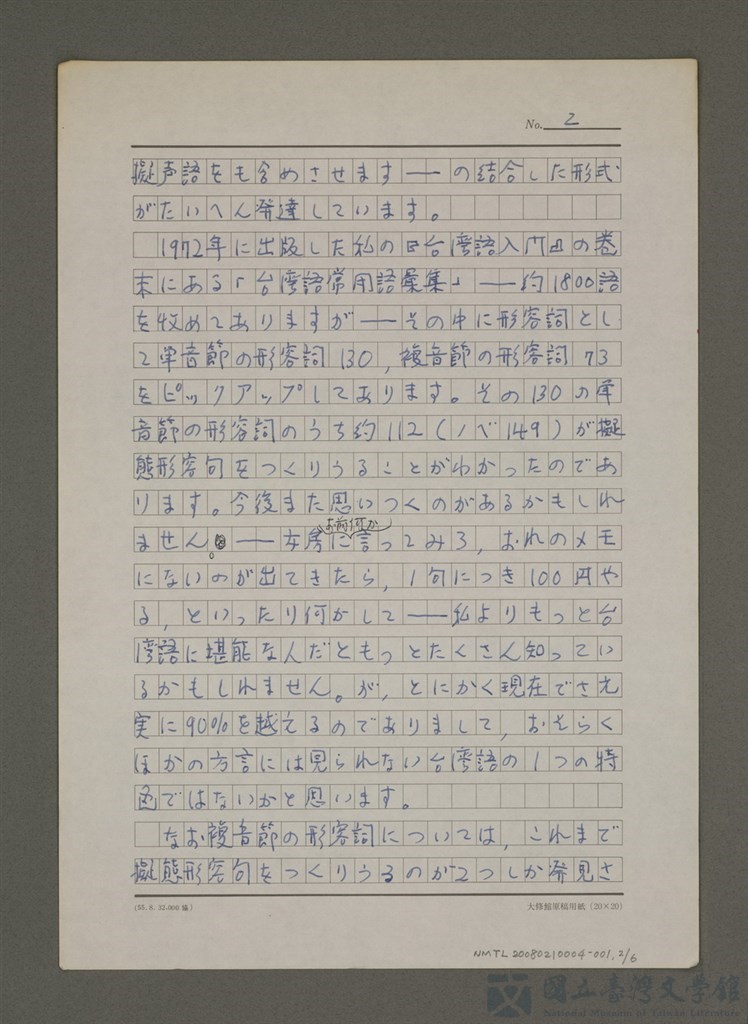 No. 2
擬声語をも含めさせます――の結合した形式
がたいへん発達しています。
1972年に出版した私の『台湾語入門』の巻
末にある「台湾語常用語彙集」――約1800語
を収めてありますが――その中に形容詞とし
て単音節の形容詞130，複音節の形容詞73
をピックアップしてあります。その130の単
音節の形容詞のうち約112（ノベ149）が擬
態形容句をつくりうることがわかったのであ
ります。今後また思いつくのがあるかもしれ
お前何か
ません。――女房に言ってみろ，おれのメモ
にないのが出てきたら，1句につき100円や
る，といったり何かして――私よりもっと台
湾語に堪能な人だともっとたくさん知ってい
るかもしれません。が，とにかく現在でさえ
実に90％を越えるのでありまして，おそらく
ほかの方言には見られない台湾語の1つの特
色ではないかと思います。
なお複音節の形容詞については，これまで
擬態形容句をつくりうるのが2つしか発見さ
(55. 8. 32,000 編)
大修館原稿用紙 (20×20)
NMTL 20080210004-001, 2/6
國立臺灣文學館
National Museum of Taiwan Literature